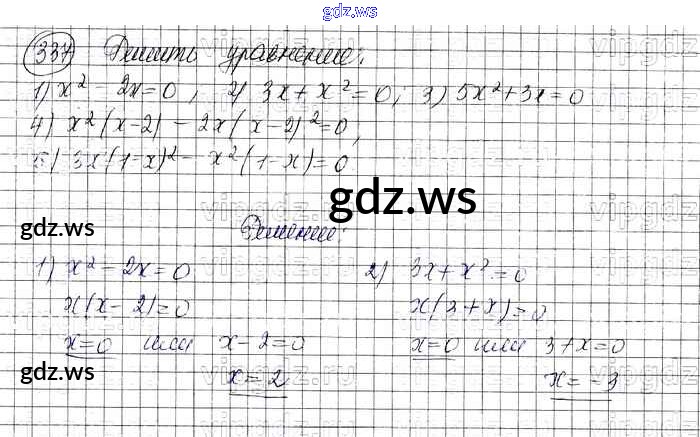 gdz.ws
337 Решить уравнение:
1) x² - 2x = 0, 2) 3x + x² = 0; 3) 5x² + 3x = 0
4) x²(x-2) - 2x(x-2)² = 0,
5) 3x(1-x)² - x²(1-x) = 0
gdz.ws
gdz.ws
Решение:
1) x² - 2x = 0 2) 3x + x² = 0
x(x-2) = 0 x(3+x) = 0
x=0 или x-2=0 x=0 или 3+x=0
gdz.ws
x=2 x=-3